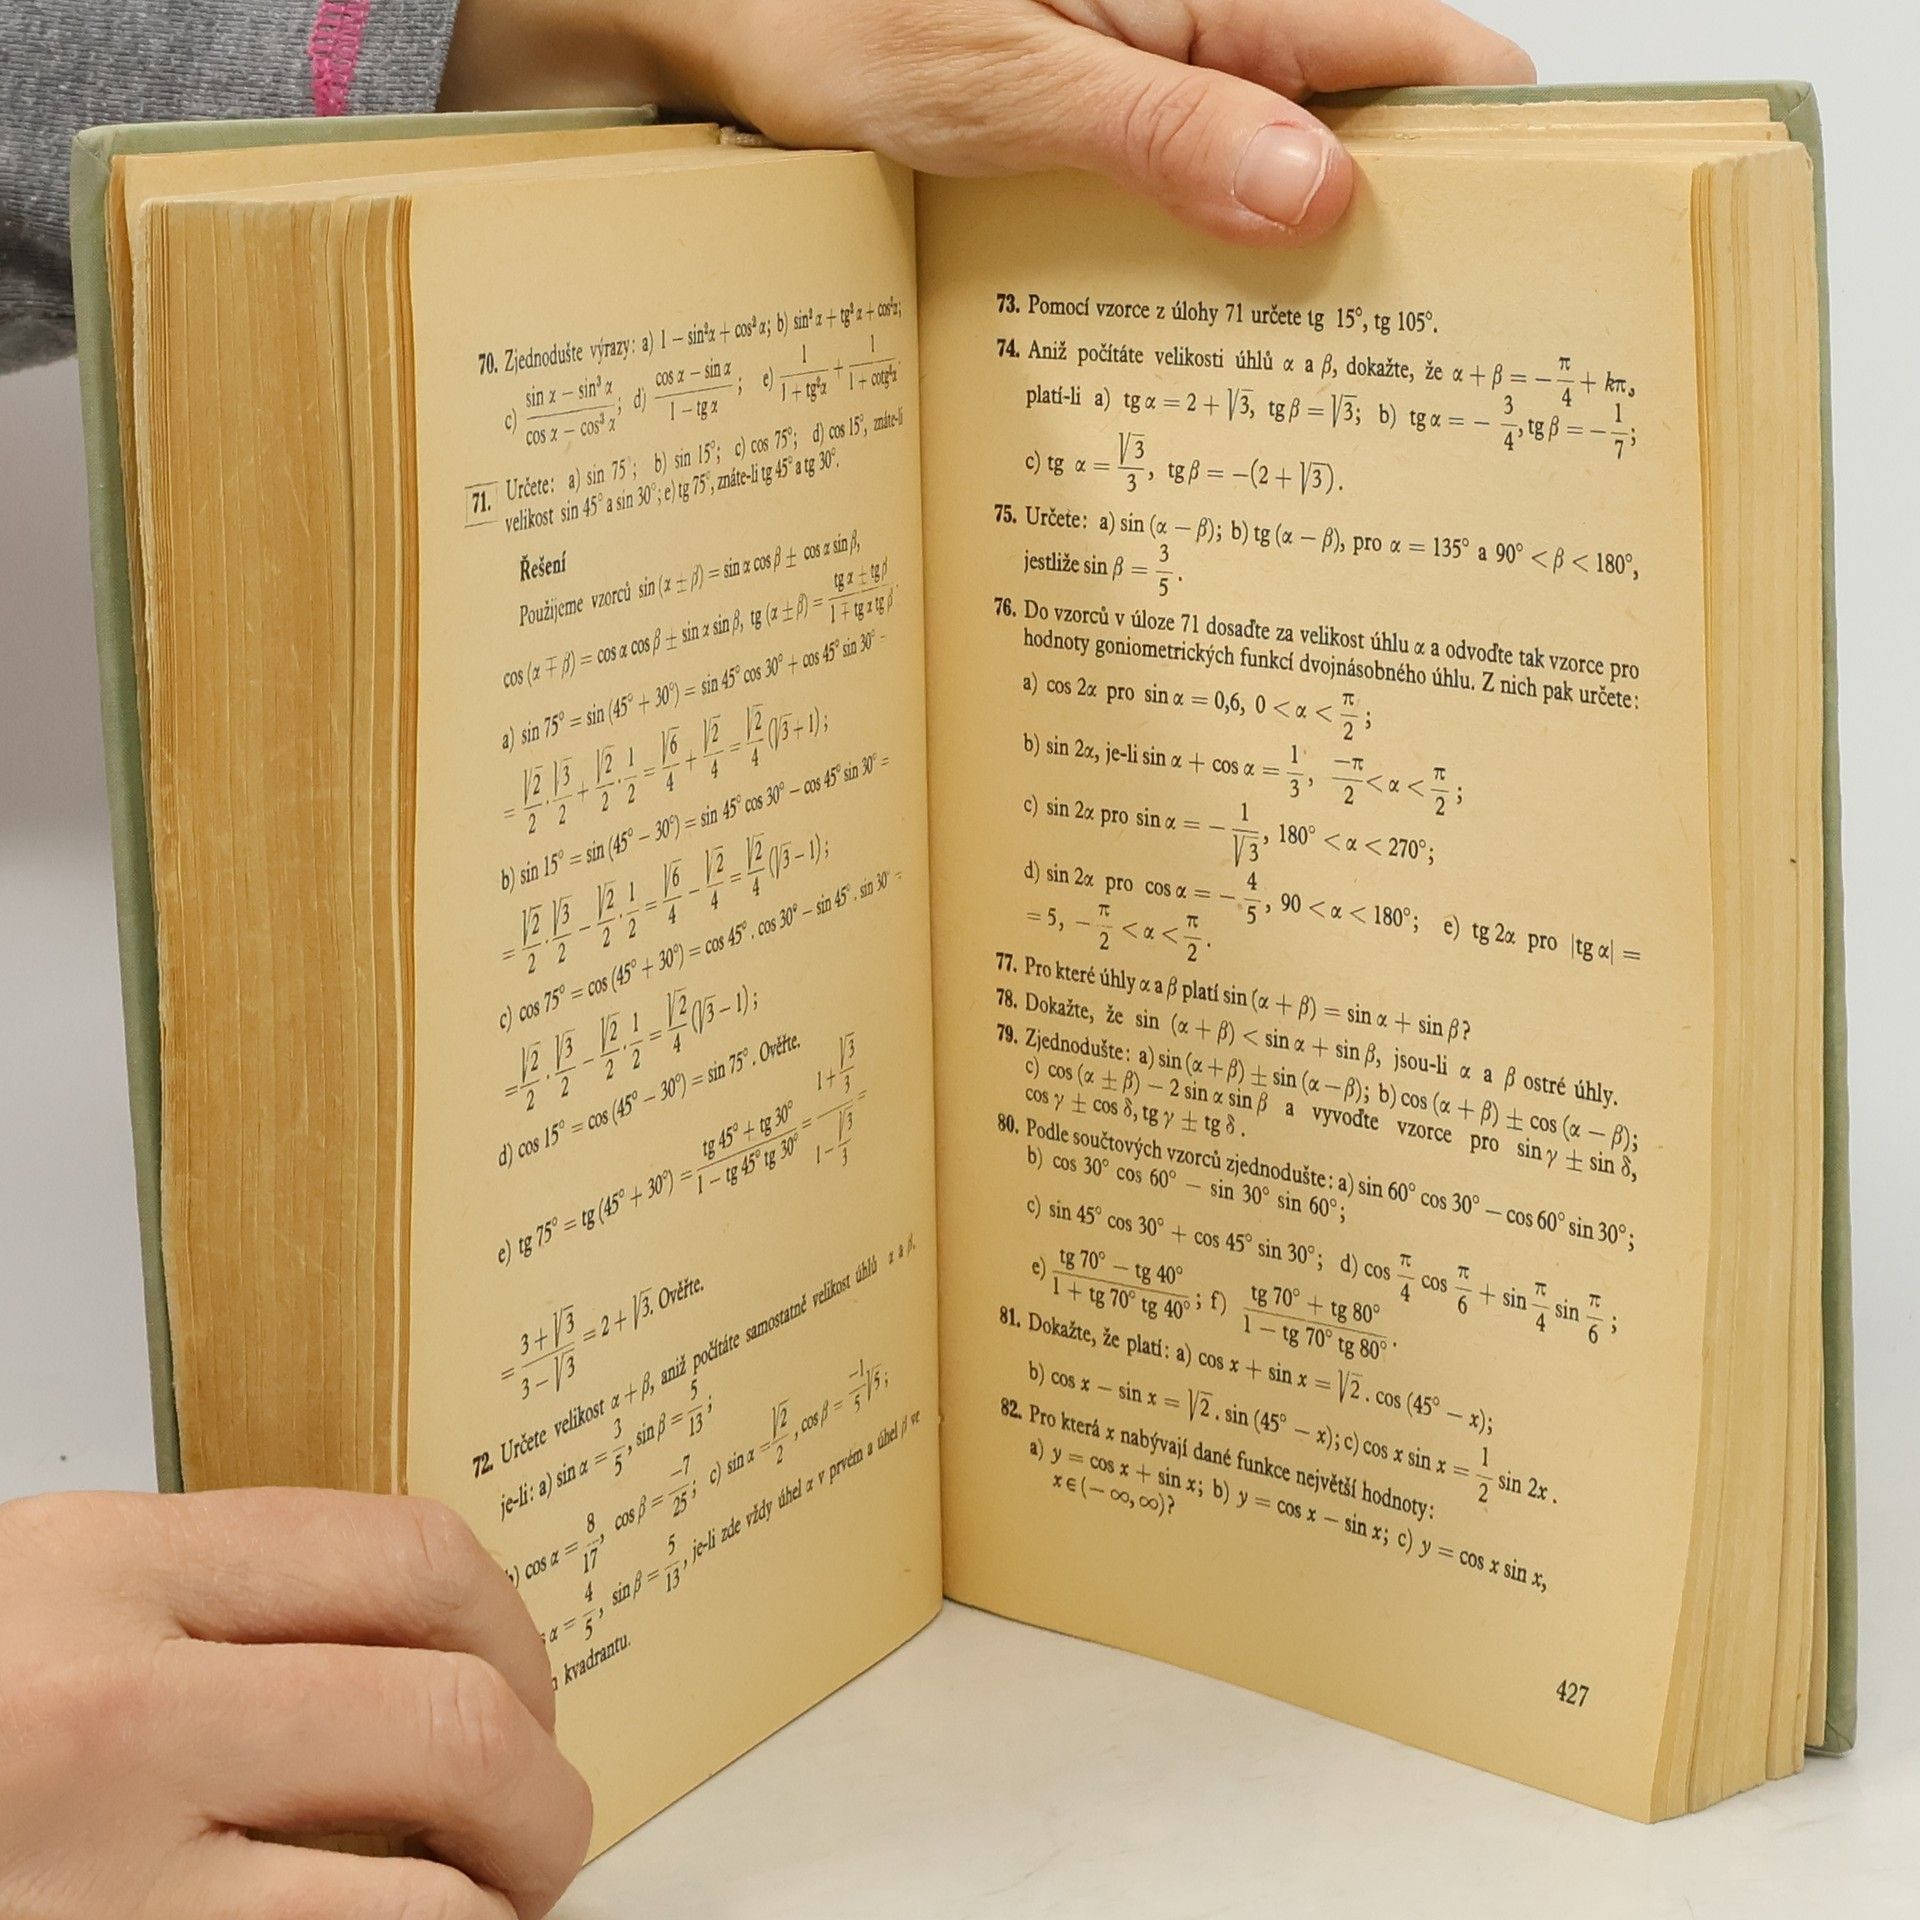 70. Zjednodušte výrazy: a) 1 − sin²α + cos² α; b) sin² α + tg² α + cos²α;
c) (sin α − sin³ α)/(cos α − cos³ α); d) (cos α − sin α)/(1 − tg α); e) 1/(1 + tg²α) + 1/(1 + cotg²α).
71. Určete: a) sin 75°; b) sin 15°; c) cos 75°; d) cos 15°, znáte-li
velikost sin 45° a sin 30°; e) tg 75°, znáte-li tg 45° a tg 30°.
Řešení
Použijeme vzorců sin (α ± β) = sin α cos β ± cos α sin β,
cos (α ∓ β) = cos α cos β ± sin α sin β, tg (α ± β) = (tg α ± tg β)/(1 ∓ tg α tg β).
a) sin 75° = sin (45° + 30°) = sin 45° cos 30° + cos 45° sin 30° =
= √2/2 · √3/2 + √2/2 · 1/2 = √6/4 + √2/4 = √2/4 (√3 + 1);
b) sin 15° = sin (45° − 30°) = sin 45° cos 30° − cos 45° sin 30° =
= √2/2 · √3/2 − √2/2 · 1/2 = √6/4 − √2/4 = √2/4 (√3 − 1);
c) cos 75° = cos (45° + 30°) = cos 45° . cos 30° − sin 45° . sin 30° =
= √2/2 · √3/2 − √2/2 · 1/2 = √2/4 (√3 − 1);
d) cos 15° = cos (45° − 30°) = sin 75° . Ověřte.
e) tg 75° = tg (45° + 30°) = (tg 45° + tg 30°)/(1 − tg 45° tg 30°) = (1 + √3/3)/(1 − √3/3) =
= (3 + √3)/(3 − √3) = 2 + √3. Ověřte.
72. Určete velikost α + β, aniž počítáte samostatně velikost úhlů α a β,
je-li: a) sin α = 3/5, sin β = 5/13;
b) cos α = 8/17, cos β = −7/25; c) sin α = √2/2, cos β = −1/5 √5;
α = 4/5, sin β = 5/13, je-li zde vždy úhel α v prvém a úhel β ve
kvadrantu.
73. Pomocí vzorce z úlohy 71 určete tg 15°, tg 105°.
74. Aniž počítáte velikosti úhlů α a β, dokažte, že α + β = − π/4 + kπ,
platí-li a) tg α = 2 + √3, tg β = √3; b) tg α = − 3/4, tg β = − 1/7;
c) tg α = √3/3, tg β = −(2 + √3).
75. Určete: a) sin (α − β); b) tg (α − β), pro α = 135° a 90° < β < 180°,
jestliže sin β = 3/5.
76. Do vzorců v úloze 71 dosaďte za velikost úhlu α a odvoďte tak vzorce pro
hodnoty goniometrických funkcí dvojnásobného úhlu. Z nich pak určete:
a) cos 2α pro sin α = 0,6, 0 < α < π/2;
b) sin 2α, je-li sin α + cos α = 1/3, −π/2 < α < π/2;
c) sin 2α pro sin α = − 1/√3, 180° < α < 270°;
d) sin 2α pro cos α = − 4/5, 90 < α < 180°; e) tg 2α pro |tg α| =
= 5, − π/2 < α < π/2.
77. Pro které úhly α a β platí sin (α + β) = sin α + sin β?
78. Dokažte, že sin (α + β) < sin α + sin β, jsou-li α a β ostré úhly.
79. Zjednodušte: a) sin (α + β) ± sin (α − β); b) cos (α + β) ± cos (α − β);
c) cos (α ± β) − 2 sin α sin β a vyvoďte vzorce pro sin γ ± sin δ,
cos γ ± cos δ, tg γ ± tg δ .
80. Podle součtových vzorců zjednodušte: a) sin 60° cos 30° − cos 60° sin 30°;
b) cos 30° cos 60° − sin 30° sin 60°;
c) sin 45° cos 30° + cos 45° sin 30°; d) cos π/4 cos π/6 + sin π/4 sin π/6;
e) (tg 70° − tg 40°)/(1 + tg 70° tg 40°); f) (tg 70° + tg 80°)/(1 − tg 70° tg 80°).
81. Dokažte, že platí: a) cos x + sin x = √2 . cos (45° − x);
b) cos x − sin x = √2 . sin (45° − x); c) cos x sin x = 1/2 sin 2x .
82. Pro která x nabývají dané funkce největší hodnoty:
a) y = cos x + sin x; b) y = cos x − sin x; c) y = cos x sin x,
x ∈ (− ∞, ∞)?
427